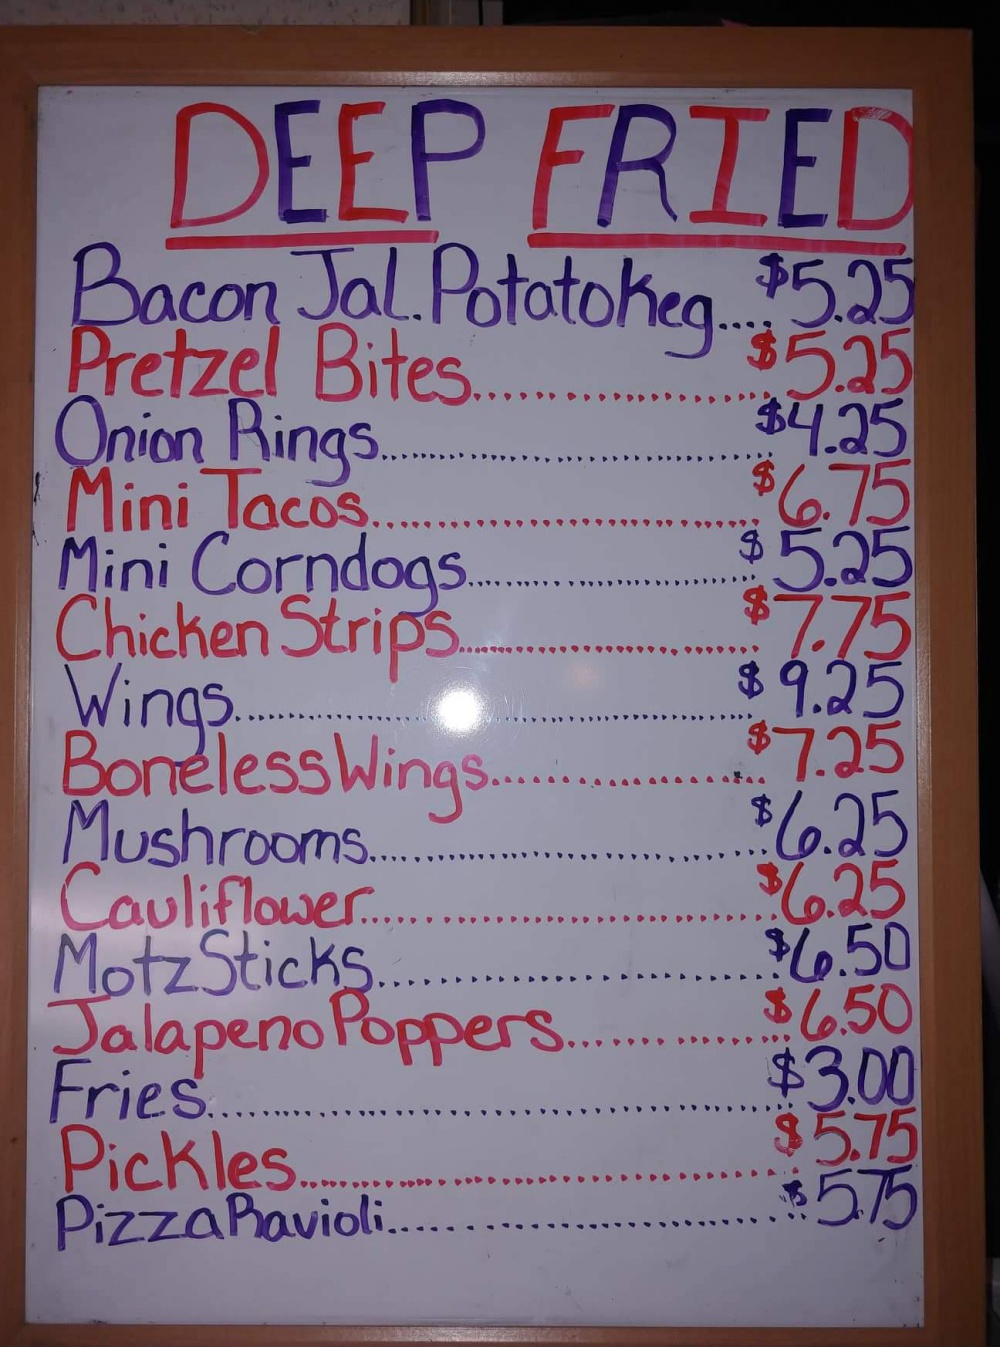 DEEP FRIED
Bacon Jal. Potato Keg.... $5.25
Pretzel Bites.................... $5.25
Onion Rings........................................ $4.25
Mini Tacos........................................ $6.75
Mini Corndogs........................................ $5.25
Chicken Strips........................................ $7.75
Wings............................................................ $9.25
Boneless Wings.............................. $7.25
Mushrooms........................................ $6.25
Cauliflower........................................ $6.25
Motz Sticks........................................ $6.50
Jalapeno Poppers.................... $6.50
Fries............................................................ $3.00
Pickles.................................................. $5.75
Pizza Ravioli........................................ $5.75